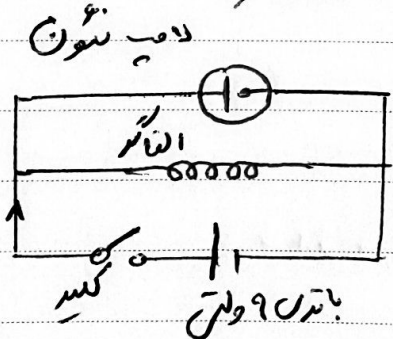 لامپ نئون
القاگر
کلید
باتری ۹ ولتی